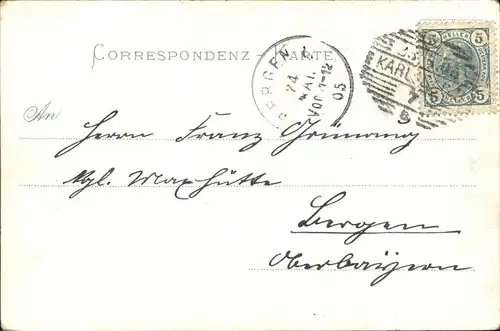 CORRESPONDENZ-KARTE.
BERGEN
24
MAI.
VOR. 11-12
05
KARLS
7
8
5 HELLER 5
5 5
An Herrn Franz Grünang
Kgl. Maxhütte
Bergen
Oberbayern